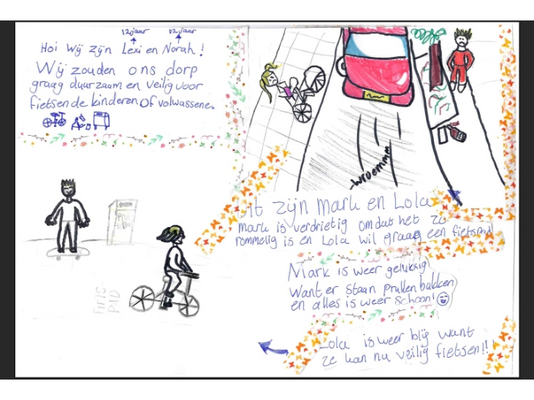 12 jaar 12 jaar
Hoi wij zijn Lexi en Norah!
Wij zouden ons dorp
graag duurzaam en veilig voor
fietsende kinderen of volwassene.
wroemmm
Dit zijn mark en Lola
mark is verdrietig omdat het zo
rommelig is en Lola wil graag een fietspad
Mark is weer gelukkig!
Want er staan prullenbakken
en alles is weer schoon!
FIETS
PAD
Lola is weer blij want
ze kan nu veilig fietsen!!